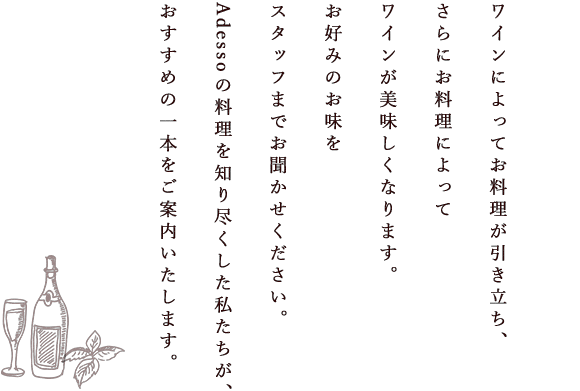 ワインによってお料理が引き立ち、
さらにお料理によって
ワインが美味しくなります。
お好みのお味を
スタッフまでお聞かせください。
Adessoの料理を知り尽くした私たちが、
おすすめの一本をご案内いたします。